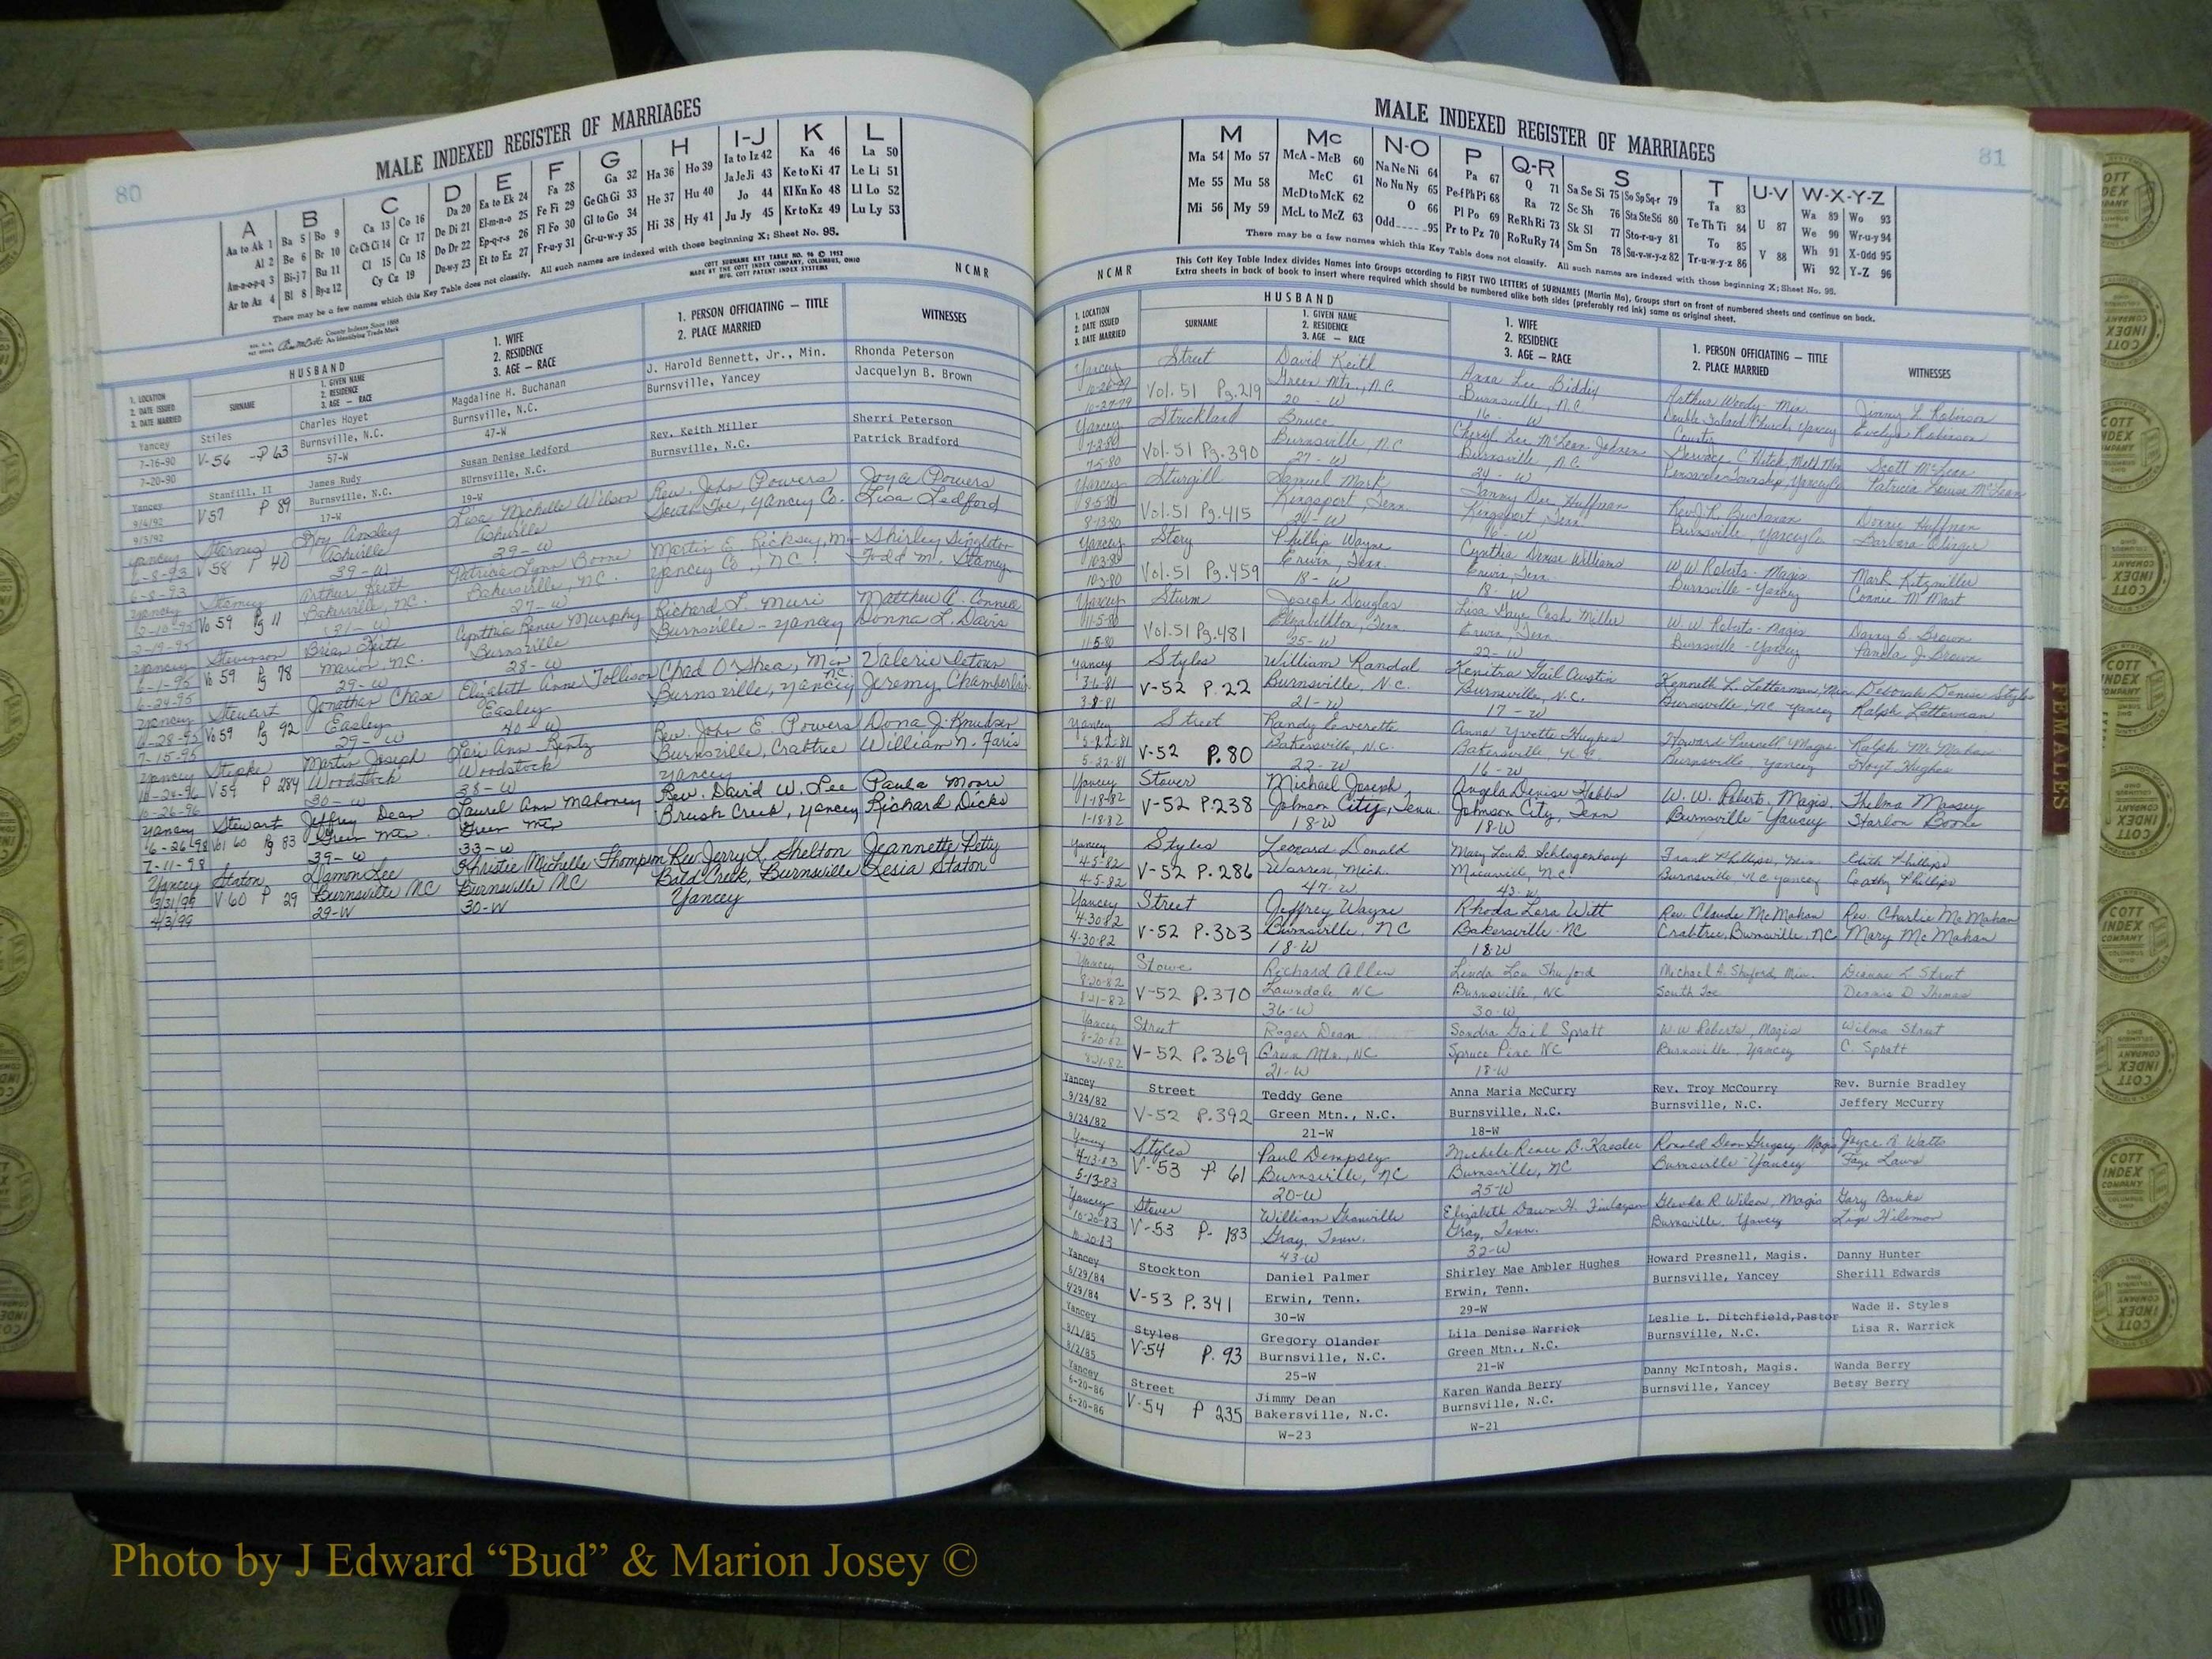 80
MALE INDEXED REGISTER OF MARRIAGES
A B C D E F G H I-J K L
Aa to Ak 1 Ba 5 Bo 9 Ca 13 Co 16 Da 20 Ea to Ek 24 Fa 28 Ga 32 Ha 36 Ho 39 Ia to Iz 42 Ka 46 La 50
Al 2 Be 6 Br 10 Ce Ch Ci 14 Cr 17 De Di 21 El-m-n-o 25 Fe Fi 29 Ge Gh Gi 33 He 37 Hu 40 Ja Je Ji 43 Ke to Ki 47 Le Li 51
Am-n-o-p-q 3 Bi-j 7 Bu 11 Cl 15 Cu 18 Do Dr 22 Ep-q-r-s 26 Fl Fo 30 Gl to Go 34 Hi 38 Hy 41 Jo 44 Kl Kn Ko 48 Ll Lo 52
Ar to Az 4 Bl 8 By-z 12 Cy Cz 19 Du-w-y 23 Et to Ez 27 Fr-u-y 31 Gr-u-w-y 35 Ju Jy 45 Kr to Kz 49 Lu Ly 53
There may be a few names which this Key Table does not classify. All such names are indexed with those beginning X; Sheet No. 95.
COTT SURNAME KEY TABLE NO. 96 © 1952
MADE BY THE COTT INDEX COMPANY, COLUMBUS, OHIO
MFG. COTT PATENT INDEX SYSTEMS
NCMR
County Indexes Since 1888
An Identifying Trade Mark
HUSBAND
1. LOCATION
2. DATE ISSUED
3. DATE MARRIED
SURNAME
1. GIVEN NAME
2. RESIDENCE
3. AGE — RACE
1. WIFE
2. RESIDENCE
3. AGE — RACE
1. PERSON OFFICIATING — TITLE
2. PLACE MARRIED
WITNESSES
Yancey Stiles Charles Hoyet Magdaline H. Buchanan J. Harold Bennett, Jr., Min. Rhonda Peterson
7-16-90 V-56 -P 63 Burnsville, N.C. Burnsville, N.C. Burnsville, Yancey Jacquelyn B. Brown
7-20-90 57-W 47-W
Yancey Stanfill, II James Rudy Susan Denise Ledford Rev. Keith Miller Sherri Peterson
9/4/92 V57 P 89 Burnsville, N.C. BUrnsville, N.C. Burnsville, N.C. Patrick Bradford
9/5/92 17-W 19-W
Yancey Roy Ansley Lisa Michelle Wilson Rev. John Powers Joyce Powers
6-8-93 V 58 P 40 Asheville Asheville South Toe, Yancey Co. Lisa Ledford
6-8-93 39-W 29-W
Yancey Stamey Arthur Keith Patricia Lynn Boone Martin E. Shirley Singleton
Vo 59 Pg 11 Bakersville, NC. Bakersville, NC. Yancey Co., NC. Todd M. Stamey
2-19-95 31-W 27-W
Yancey Stevenson Brian Keith Cynthia Renee Murphy Richard L. Muri Matthew A.
6-1-95 Vo 59 Pg 78 Marion, NC. Burnsville Burnsville - Yancey Donna L. Davis
6-24-95 29-W 28-W
Yancey Stewart Jonathan Chase Elizabeth Anne Tollison Chad O'Shea, Min Valerie
6-28-95 Vo 59 Pg 92 Easley Easley Burnsville, Yancey NC. Jeremy
7-15-95 29-W 40-W
Yancey Martin Joseph Lari Ann Rev. John E. Powers Dona J. Knudsen
10-24-96 V 59 P 284 Woodstock Woodstock Burnsville, Crabtree William N. Faris
10-26-96 30-W 38-W Yancey
Yancey Stewart Jeffrey Dean Laurel Ann Mahoney Rev. David W. Lee Paula Moore
6-26-98 Vol 60 Pg 83 Green Mtn. Green Mtn Brush Creek, Yancey Richard Dicks
7-11-98 39-W 33-W
Yancey Staton Damon Lee Khristie Michelle Thompson Rev. Jerry L. Shelton Jeannette Petty
3/31/99 V 60 P 29 Burnsville NC Burnsville NC Bald Creek, Burnsville Lesia Staton
4/3/99 29-W 30-W Yancey
81
MALE INDEXED REGISTER OF MARRIAGES
M Mc N-O P Q-R S T U-V W-X-Y-Z
Ma 54 Mo 57 McA - McB 60 Na Ne Ni 64 Pa 67 Q 71 Sa Se Si 75 So Sp Sq-r 79 Ta 83 U 87 Wa 89 Wo 93
Me 55 Mu 58 McC 61 No Nu Ny 65 Pe-f Ph Pi 68 Ra 72 Sc Sh 76 Sta Ste Sti 80 Te Th Ti 84 V 88 We 90 Wr-u-y 94
Mi 56 My 59 McD to McK 62 O 66 Pl Po 69 Re Rh Ri 73 Sk Sl 77 Sto-r-u-y 81 To 85 Wh 91 X-Odd 95
McL to McZ 63 Odd 95 Pr to Pz 70 Ro Ru Ry 74 Sm Sn 78 Su-v-w-y-z 82 Tr-u-w-y-z 86 Wi 92 Y-Z 96
There may be a few names which this Key Table does not classify. All such names are indexed with those beginning X; Sheet No. 95.
NCMR
This Cott Key Table Index divides Names into Groups according to FIRST TWO LETTERS of SURNAMES (Martin Ma), Groups start on front of numbered sheets and continue on back.
Extra sheets in back of book to insert where required which should be numbered alike both sides (preferably red ink) same as original sheet.
HUSBAND
1. LOCATION
2. DATE ISSUED
3. DATE MARRIED
SURNAME
1. GIVEN NAME
2. RESIDENCE
3. AGE — RACE
1. WIFE
2. RESIDENCE
3. AGE — RACE
1. PERSON OFFICIATING — TITLE
2. PLACE MARRIED
WITNESSES
Yancey Street David Keith Anna Lee Biddix Arthur Woody - Min. Jimmy L. Robinson
10-26-79 Vol. 51 Pg. 219 Green Mtn., N.C. Burnsville, N.C. Double Island Church, Yancey Evelyn Robinson
10-27-79 20 - W 16 - W County
Yancey Strickland Bruce Cheryl Lee McLean Johnson Scott McLean
7-2-80 Vol. 51 Pg. 390 Burnsville, N.C. Burnsville, N.C. Pensacola Township, Yancey Co Patricia Louise McLean
7-5-80 27 - W 24 - W
Yancey Sturgill Samuel Mark Tammy Dee Huffman Rev. J.R. Buchanan Donnie Huffman
8-5-80 Vol. 51 Pg. 415 Kingsport, Tenn. Kingsport, Tenn. Burnsville, Yancey Co Barbara Olinger
8-13-80 16 - W
Yancey Story Phillip Wayne Cynthia Denise Williams W.W. Roberts - Magis. Mark Kitzmiller
10-3-80 Vol. 51 Pg. 459 Erwin, Tenn. Erwin, Tenn. Burnsville - Yancey Connie McMast
10-3-80 18 - W 18 - W
Yancey Sturm Joseph Douglas Lisa Gaye Cash Miller W.W. Roberts - Magis Danny B. Brown
11-5-80 Vol. 51 Pg. 481 Elizabethton, Tenn. Erwin, Tenn. Burnsville - Yancey Pamela J. Brown
11-5-80 25 - W 22 - W
Yancey Styles William Randal Kenitra Gail Austin Kenneth L. Letterman, Min Deborah Denise Styles
3-6-81 V-52 P. 22 Burnsville, N.C. Burnsville, N.C. Burnsville, NC Yancey Ralph Letterman
3-8-81 21 - W 17 - W
Yancey Street Randy Everette Anna Yvette Hughes Howard Presnell, Magis Ralph McMahan
5-22-81 V-52 P. 80 Bakersville, N.C. Bakersville, N.C. Burnsville, Yancey Hoyt Hughes
5-22-81 22-W 16-W
Yancey Stover Michael Joseph Angela Denise Hobbs W.W. Roberts, Magis. Thelma Massey
1-18-82 V-52 P. 238 Johnson City, Tenn. Johnson City, Tenn Burnsville - Yancey Starlon Boone
1-18-82 18-W 18-W
Yancey Styles Leonard Donald Mary Lou B. Schlagenhauf Frank Phillips, Min. Edith Phillips
4-5-82 V-52 P. 286 Warren, Mich. Micaville, NC Burnsville, NC Yancey Cathy Phillips
4-5-82 47-W 43-W
Yancey Street Jeffrey Wayne Rhoda Lora Witt Rev. Claude McMahan Rev. Charlie McMahan
4-30-82 V-52 P. 303 Burnsville, NC Bakersville NC Crabtree, Burnsville, NC Mary McMahan
4-30-82 18-W 18W
Yancey Stowe Richard Allen Linda Lou Shuford Michael A. Shuford, Min. Deanne L. Street
8-20-82 V-52 P. 370 Lawndale NC Burnsville, NC South Toe Dennis D. Thomas
8-21-82 36-W 30-W
Yancey Street Roger Dean Sondra Gail Spratt W.W. Roberts, Magis Wilma Street
8-20-82 V-52 P. 369 Green Mtn., NC Spruce Pine NC Burnsville, Yancey C. Spratt
8-21-82 21-W 18-W
Yancey Street Teddy Gene Anna Maria McCurry Rev. Troy McCourry Rev. Burnie Bradley
9/24/82 V-52 P. 392 Green Mtn., N.C. Burnsville, N.C. Burnsville, N.C. Jeffery McCurry
9/24/82 21-W 18-W
Yancey Styles Paul Dempsey Michele Renee D. Kaesler Ronald Dean Gregory, Magis Joyce R. Watts
4-13-83 V-53 P 61 Burnsville, NC Burnsville, NC Burnsville - Yancey Faye Laws
5-13-83 20-W 25-W
Yancey Stover William Granville Elizabeth Dawn H. Finlayson Glenda R. Wilson, Magis Gary Banks
10-20-83 V-53 P. 183 Gray, Tenn. Gray, Tenn. Burnsville, Yancey
10-20-83 43-W 32-W
Yancey Stockton Daniel Palmer Shirley Mae Ambler Hughes Howard Presnell, Magis. Danny Hunter
6/29/84 V-53 P. 341 Erwin, Tenn. Erwin, Tenn. Burnsville, Yancey Sherill Edwards
6/29/84 30-W 29-W
Yancey Styles Gregory Olander Lila Denise Warrick Leslie L. Ditchfield,Pastor Wade H. Styles
8/1/85 V-54 P. 93 Burnsville, N.C. Green Mtn., N.C. Burnsville, N.C. Lisa R. Warrick
8/3/85 25-W 21-W
Yancey Street Jimmy Dean Karen Wanda Berry Danny McIntosh, Magis. Wanda Berry
6-20-86 V-54 P 235 Bakersville, N.C. Burnsville, N.C. Burnsville, Yancey Betsy Berry
6-20-86 W-23 W-21
FEMALES
COTT
INDEX
COMPANY
Photo by J Edward “Bud” & Marion Josey ©